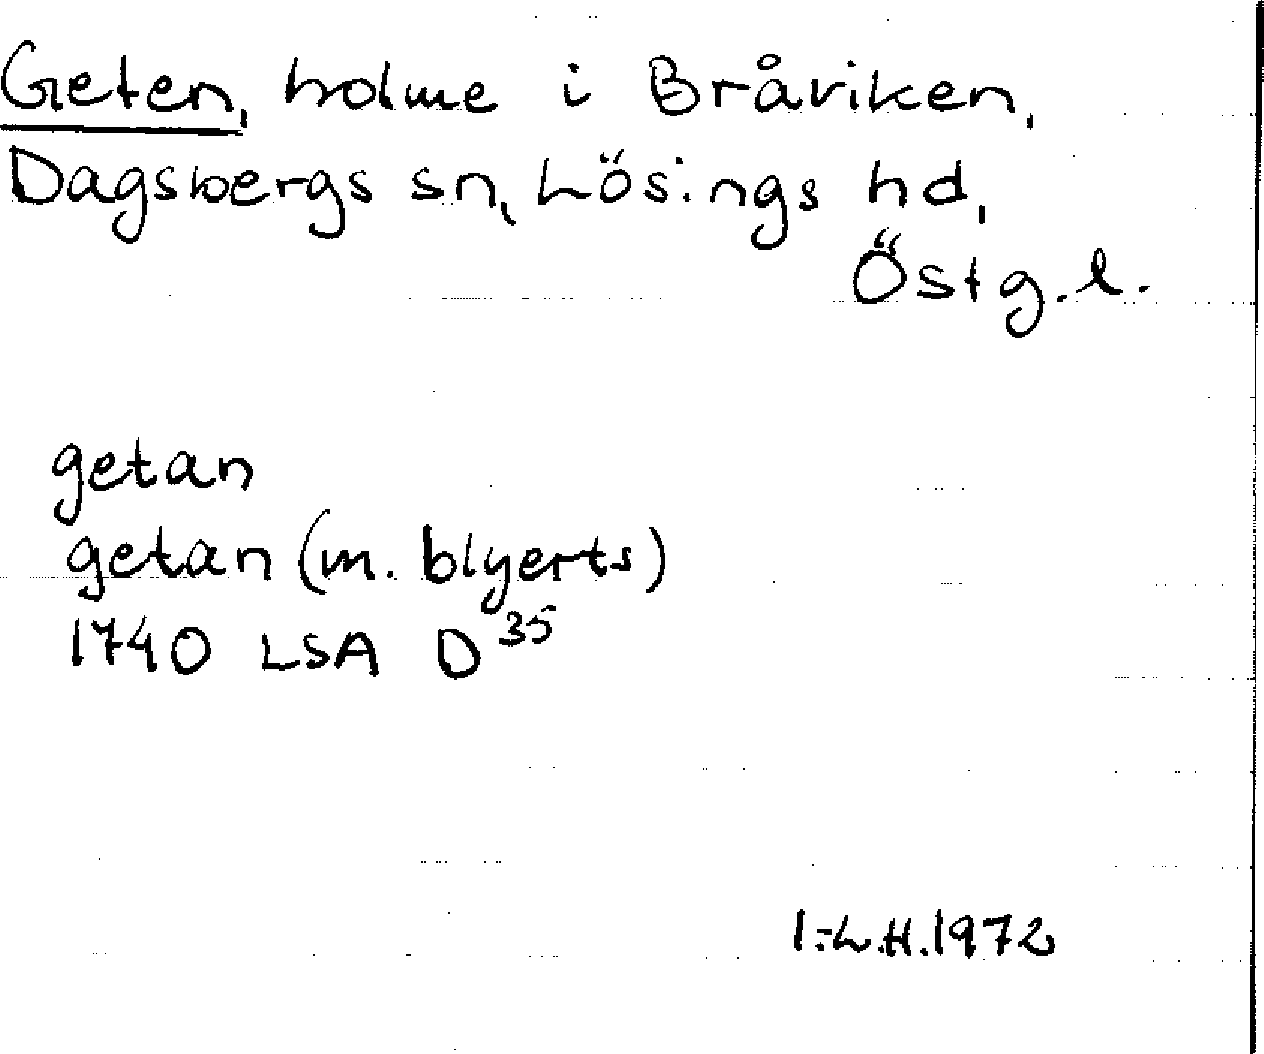 Geten, holme i Bråviken,
Dagsbergs sn, Lösings hd,
Östg.l.
getan
getan (m. blyerts)
1740 LSA D³⁵
I.-L.H. 1972